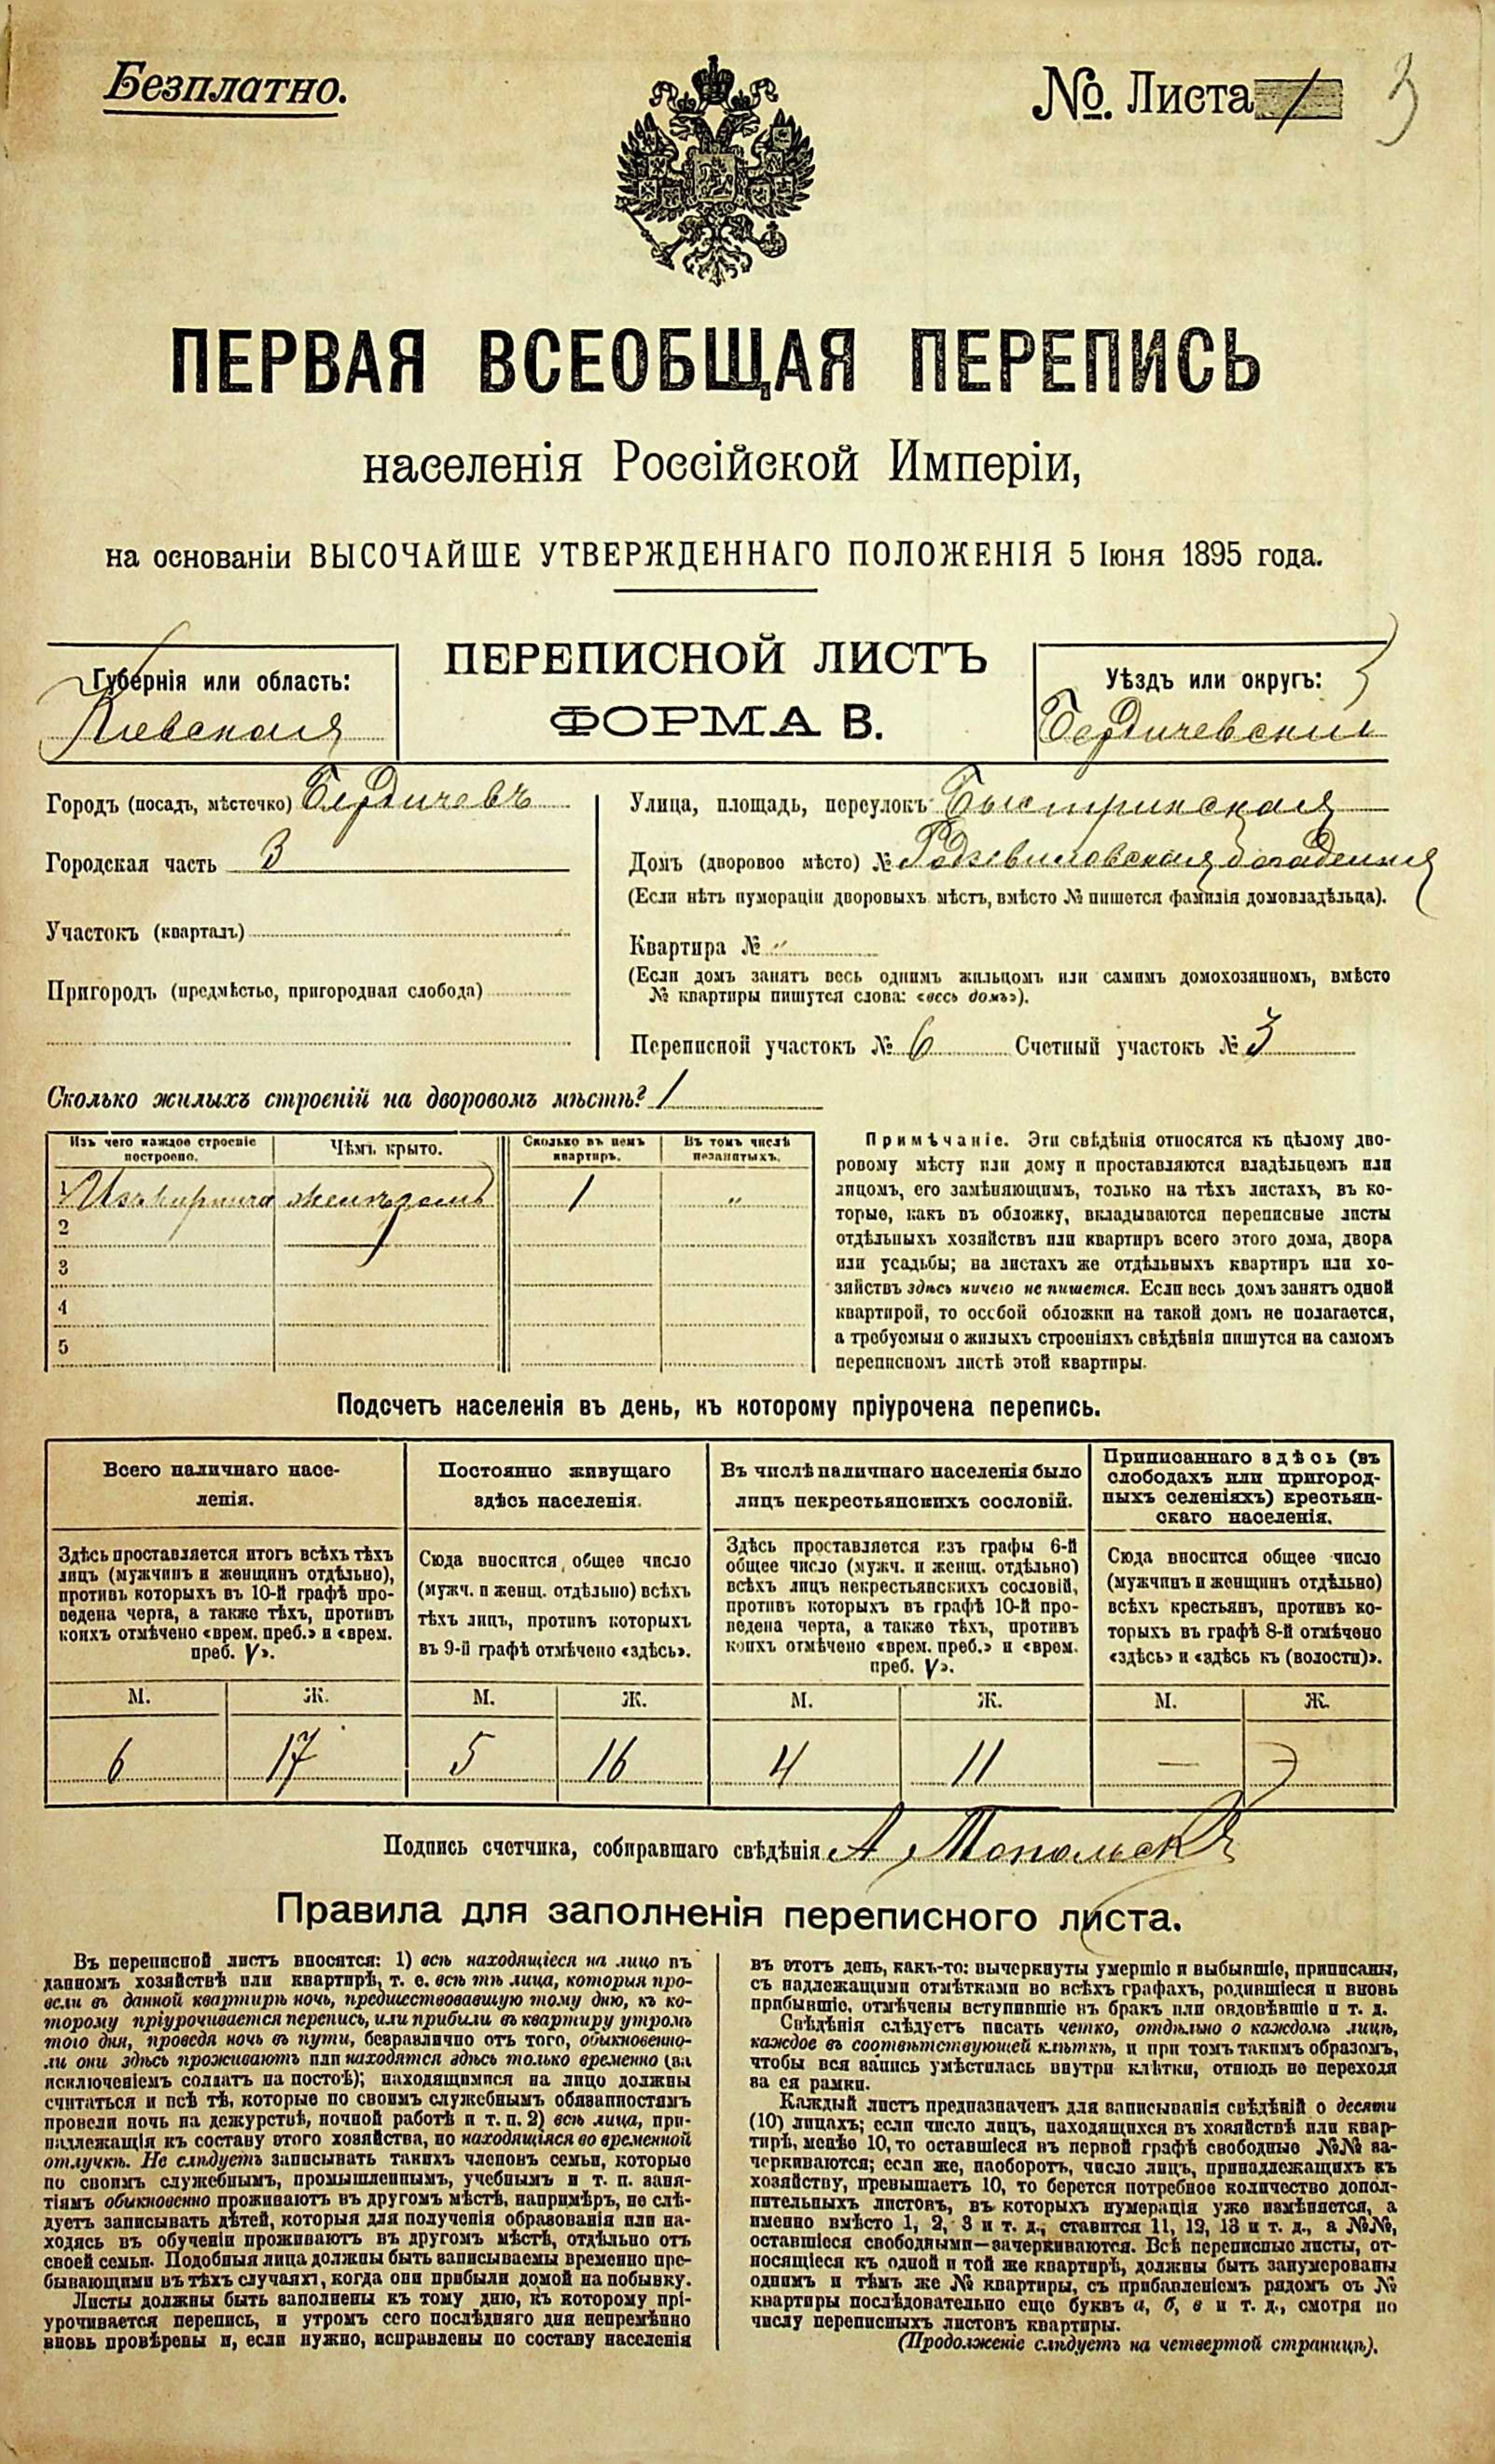 Безплатно.
№. Листа 1
3
ПЕРВАЯ ВСЕОБЩАЯ ПЕРЕПИСЬ
населенія Россійской Имперіи,
на основаніи ВЫСОЧАЙШЕ УТВЕРЖДЕННАГО ПОЛОЖЕНІЯ 5 Іюня 1895 года.
Губернія или область:
Кіевская
ПЕРЕПИСНОЙ ЛИСТЪ
ФОРМА В.
Уѣздъ или округъ:
Бердичевскій
Городъ (посадъ, мѣстечко) Бердичевъ
Городская часть 3
Участокъ (кварталъ)
Пригородъ (предмѣстье, пригородная слобода)
Улица, площадь, переулокъ Быстринская
Домъ (дворовое мѣсто) № Радзивиловская богадельня
(Если нѣтъ нумераціи дворовыхъ мѣстъ, вмѣсто № пишется фамилія домовладѣльца).
Квартира № "
(Если домъ занятъ весь однимъ жильцомъ или самимъ домохозяиномъ, вмѣсто
№ квартиры пишутся слова: «весь домъ»).
Переписной участокъ № 6 Счетный участокъ № 3
Сколько жилыхъ строеній на дворовомъ мѣстѣ? 1
Изъ чего каждое строеніе
построено.
Чѣмъ крыто.
Сколько въ немъ
квартиръ.
Въ томъ числѣ
незанятыхъ.
1 Изъ кирпича желѣзомъ 1 "
2
3
4
5
Примѣчаніе. Эти свѣдѣнія относятся къ цѣлому дво-
ровому мѣсту или дому и проставляются владѣльцемъ или
лицомъ, его замѣняющимъ, только на тѣхъ листахъ, въ ко-
торые, какъ въ обложку, вкладываются переписные листы
отдѣльныхъ хозяйствъ или квартиръ всего этого дома, двора
или усадьбы; на листахъ же отдѣльныхъ квартиръ или хо-
зяйствъ здѣсь ничего не пишется. Если весь домъ занятъ одной
квартирой, то особой обложки на такой домъ не полагается,
а требуемыя о жилыхъ строеніяхъ свѣдѣнія пишутся на самомъ
переписномъ листѣ этой квартиры.
Подсчетъ населенія въ день, къ которому пріурочена перепись.
Всего наличнаго насе-
ленія.
Здѣсь проставляется итогъ всѣхъ тѣхъ
лицъ (мужчинъ и женщинъ отдѣльно),
противъ которыхъ въ 10-й графѣ про-
ведена черта, а также тѣхъ, противъ
коихъ отмѣчено «врем. преб.» и «врем.
преб. V».
Постоянно живущаго
здѣсь населенія.
Сюда вносится общее число
(мужч. и женщ. отдѣльно) всѣхъ
тѣхъ лицъ, противъ которыхъ
въ 9-й графѣ отмѣчено «здѣсь».
Въ числѣ наличнаго населенія было
лицъ некрестьянскихъ сословій.
Здѣсь проставляется изъ графы 6-й
общее число (мужч. и женщ. отдѣльно)
всѣхъ лицъ некрестьянскихъ сословій,
противъ которыхъ въ графѣ 10-й про-
ведена черта, а также тѣхъ, противъ
коихъ отмѣчено «врем. преб.» и «врем.
преб. V».
Приписаннаго здѣсь (въ
слободахъ или пригород-
ныхъ селеніяхъ) крестьян-
скаго населенія.
Сюда вносится общее число
(мужчинъ и женщинъ отдѣльно)
всѣхъ крестьянъ, противъ ко-
торыхъ въ графѣ 8-й отмѣчено
«здѣсь» и «здѣсь къ (волости)».
М. Ж. М. Ж. М. Ж. М. Ж.
6 17 5 16 4 11 —
Подпись счетчика, собиравшаго свѣдѣнія А Топольск
Правила для заполненія переписного листа.
Въ переписной листъ вносятся: 1) всѣ находящіеся на лицо въ
данномъ хозяйствѣ или квартирѣ, т. е. всѣ тѣ лица, которыя про-
вели въ данной квартирѣ ночь, предшествовавшую тому дню, къ ко-
торому пріурочивается перепись, или прибыли въ квартиру утромъ
того дня, проведя ночь въ пути, безразлично отъ того, обыкновенно-
ли они здѣсь проживаютъ или находятся здѣсь только временно (за
исключеніемъ солдатъ на постоѣ); находящимися на лицо должны
считаться и всѣ тѣ, которые по своимъ служебнымъ обязанностямъ
провели ночь на дежурствѣ, ночной работѣ и т. п. 2) всѣ лица, при-
надлежащія къ составу этого хозяйства, но находящіяся во временной
отлучкѣ. Не слѣдуетъ записывать такихъ членовъ семьи, которые
по своимъ служебнымъ, промышленнымъ, учебнымъ и т. п. заня-
тіямъ обыкновенно проживаютъ въ другомъ мѣстѣ, напримѣръ, не слѣ-
дуетъ записывать дѣтей, которыя для полученія образованія или на-
ходясь въ обученіи проживаютъ въ другомъ мѣстѣ, отдѣльно отъ
своей семьи. Подобныя лица должны быть записываемы временно пре-
бывающими въ тѣхъ случаяхъ, когда они прибыли домой на побывку.
Листы должны быть заполнены къ тому дню, къ которому прі-
урочивается перепись, и утромъ сего послѣдняго дня непремѣнно
вновь провѣрены и, если нужно, исправлены по составу населенія
въ этотъ день, какъ-то: вычеркнуты умершіе и выбывшіе, приписаны,
съ надлежащими отмѣтками во всѣхъ графахъ, родившіеся и вновь
прибывшіе, отмѣчены вступившіе въ бракъ или овдовѣвшіе и т. д.
Свѣдѣнія слѣдуетъ писать четко, отдѣльно о каждомъ лицѣ,
каждое въ соотвѣтствующей клѣткѣ, и при томъ такимъ образомъ,
чтобы вся запись умѣстилась внутри клѣтки, отнюдь не переходя
за ея рамки.
Каждый листъ предназначенъ для записыванія свѣдѣній о десяти
(10) лицахъ; если число лицъ, находящихся въ хозяйствѣ или квар-
тирѣ, менѣе 10, то оставшіеся въ первой графѣ свободные №№ за-
черкиваются; если же, наоборотъ, число лицъ, принадлежащихъ къ
хозяйству, превышаетъ 10, то берется потребное количество допол-
нительныхъ листовъ, въ которыхъ нумерація уже измѣняется, а
именно вмѣсто 1, 2, 3 и т. д., ставится 11, 12, 13 и т. д., а №№,
оставшіеся свободными—зачеркиваются. Всѣ переписные листы, от-
носящіеся къ одной и той же квартирѣ, должны быть занумерованы
однимъ и тѣмъ же № квартиры, съ прибавленіемъ рядомъ съ №
квартиры послѣдовательно еще буквъ а, б, в и т. д., смотря по
числу переписныхъ листовъ квартиры.
(Продолженіе слѣдуетъ на четвертой страницѣ).